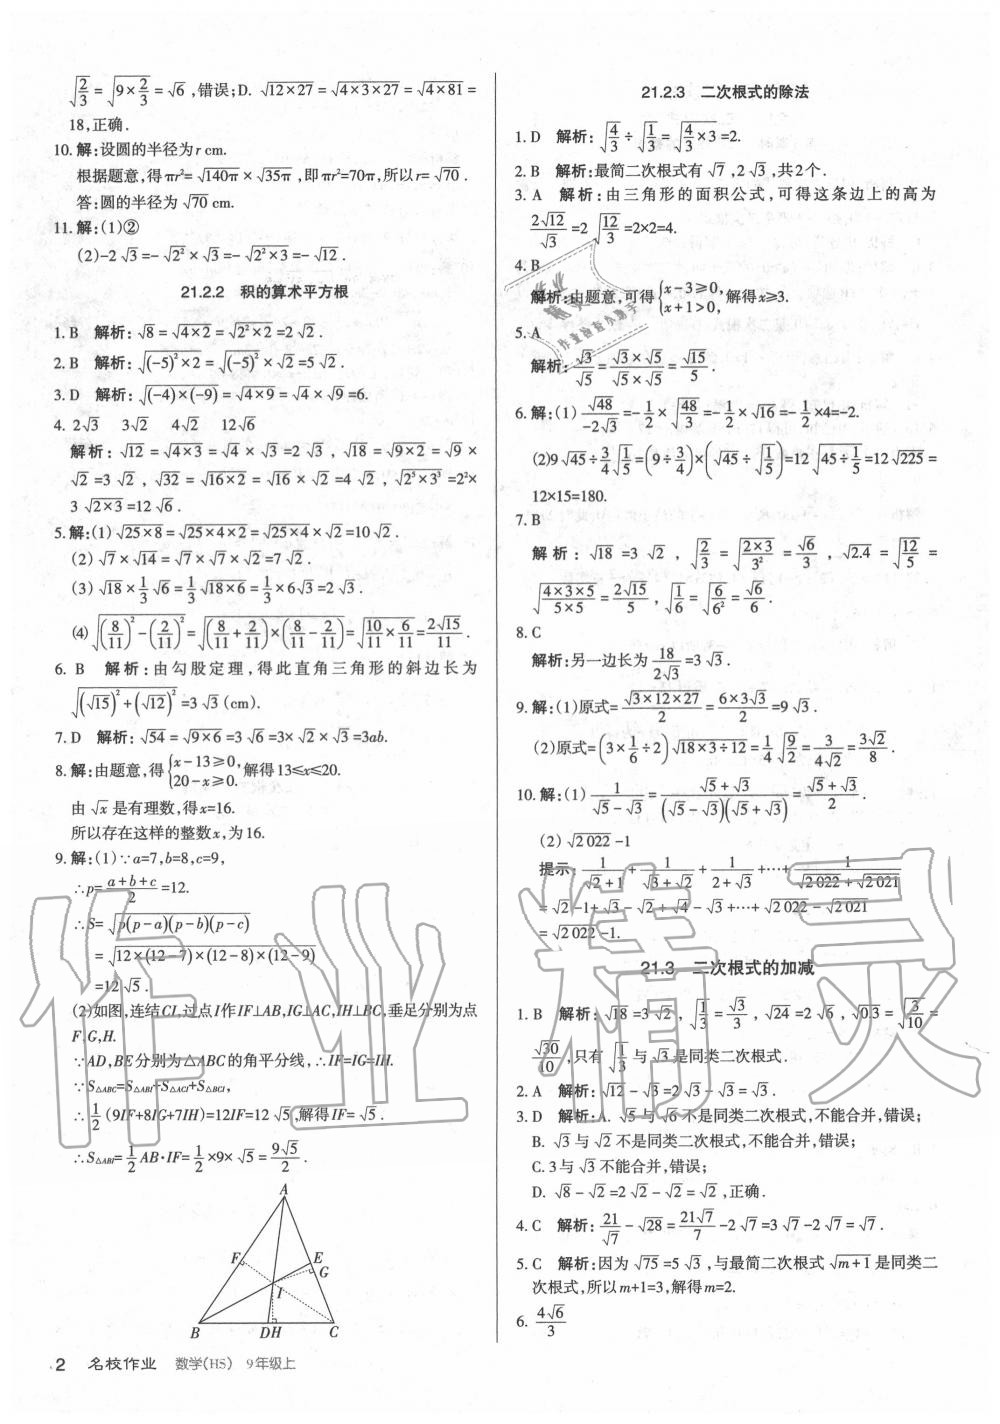 √(2/3) = √(9×2/3) = √6 ,错误;D. √(12×27) = √(4×3×27) = √(4×81) =
18,正确.
10. 解:设圆的半径为r cm.
根据题意,得πr²= √(140π) × √(35π) ,即πr²=70π,所以r= √70 .
答:圆的半径为 √70 cm.
11. 解:(1)②
(2)-2 √3 =- √(2²) × √3 =- √(2²×3) =- √12 .
21.2.2 积的算术平方根
1. B 解析: √8 = √(4×2) = √(2²×2) =2 √2 .
2. B 解析: √((-5)²×2) = √((-5)²) × √2 =5 √2 .
3. D 解析: √((-4)×(-9)) = √(4×9) = √4 × √9 =6.
4. 2√3 3√2 4√2 12√6
解析: √12 = √(4×3) = √4 × √3 =2 √3 , √18 = √(9×2) = √9 ×
√2 =3 √2 , √32 = √(16×2) = √16 × √2 =4 √2 , √(2⁵×3³) =2²×
3 √(2×3) =12 √6 .
5. 解:(1) √(25×8) = √(25×4×2) = √(25×4) × √2 =10 √2 .
(2) √7 × √14 = √7 × √7 × √2 =7 √2 .
(3) √18 × 1/3 √6 = 1/3 √(18×6) = 1/3 ×6 √3 =2 √3 .
(4) √((8/11)²-(2/11)²) = √((8/11+2/11)×(8/11-2/11)) = √(10/11×6/11) = 2√15/11 .
6. B 解析:由勾股定理,得此直角三角形的斜边长为
√((√15)²+(√12)²) =3 √3 (cm).
7. D 解析: √54 = √(9×6) =3 √6 =3× √2 × √3 =3ab.
8. 解:由题意,得{x-13≥0, 20-x≥0. 解得13≤x≤20.
由 √x 是有理数,得x=16.
所以存在这样的整数x,为16.
9. 解:(1)∵a=7,b=8,c=9,
∴p= (a+b+c)/2 =12.
∴S= √(p(p-a)(p-b)(p-c))
= √(12×(12-7)×(12-8)×(12-9))
=12 √5 .
(2)如图,连结CI,过点I作IF⊥AB,IG⊥AC,IH⊥BC,垂足分别为点
F,G,H.
∵AD,BE分别为△ABC的角平分线,∴IF=IG=IH.
∵S△ABC=S△ABI+S△ACI+S△BCI,
∴ 1/2 (9IF+8IG+7IH)=12IF=12 √5 ,解得IF= √5 .
∴S△ABI= 1/2 AB·IF= 1/2 ×9× √5 = 9√5/2 .
A
F
E
G
I
B
D
H
C
21.2.3 二次根式的除法
1. D 解析: √(4/3) ÷ √(1/3) = √(4/3×3) =2.
2. B 解析:最简二次根式有 √7 ,2 √3 ,共2个.
3. A 解析:由三角形的面积公式,可得这条边上的高为
2√12/√3 =2 √(12/3) =2×2=4.
4. B
解析:由题意,可得{x-3≥0, x+1>0, 解得x≥3.
5. A
解析: √3/√5 = (√3×√5)/(√5×√5) = √15/5 .
6. 解:(1) √48/(-2√3) =- 1/2 × √(48/3) =- 1/2 × √16 =- 1/2 ×4=-2.
(2)9 √45 ÷ 3/4 √(1/5) =(9÷3/4)×(√45÷√(1/5))=12 √(45÷1/5) =12 √225 =
12×15=180.
7. B
解析: √18 =3 √2 , √(2/3) = √((2×3)/3²) = √6/3 , √2.4 = √(12/5) =
√((4×3×5)/(5×5)) = 2√15/5 , √(1/6) = √(6/6²) = √6/6 .
8. C
解析:另一边长为 18/(2√3) =3 √3 .
9. 解:(1)原式= √(3×12×27)/2 = (6×3√3)/2 =9 √3 .
(2)原式=(3×1/6÷2) √(18×3÷12) = 1/4 √(9/2) = 3/(4√2) = 3√2/8 .
10. 解:(1) 1/(√5-√3) = (√5+√3)/((√5-√3)(√5+√3)) = (√5+√3)/2 .
(2) √2 022 -1
提示: 1/(√2+1) + 1/(√3+√2) + 1/(2+√3) +…+ 1/(√2 022+√2 021)
= √2 -1+ √3 - √2 + √4 - √3 +…+ √2 022 - √2 021
= √2 022 -1.
21.3 二次根式的加减
1. B 解析: √18 =3 √2 , √(1/3) = √3/3 , √24 =2 √6 , √0.3 = √(3/10) =
√30/10 ,只有 √(1/3) 与 √3 是同类二次根式.
2. A 解析: √12 - √3 =2 √3 - √3 = √3 .
3. D 解析:A. √5 与 √6 不是同类二次根式,不能合并,错误;
B. √3 与 √2 不是同类二次根式,不能合并,错误;
C. 3与 √3 不能合并,错误;
D. √8 - √2 =2 √2 - √2 = √2 ,正确.
4. C 解析: 21/√7 - √28 = 21√7/7 -2 √7 =3 √7 -2 √7 = √7 .
5. C 解析:因为 √75 =5 √3 ,与最简二次根式 √(m+1) 是同类二
次根式,所以m+1=3,解得m=2.
6. 4√6/3
2 名校作业 数学(HS) 9年级上
作业精灵